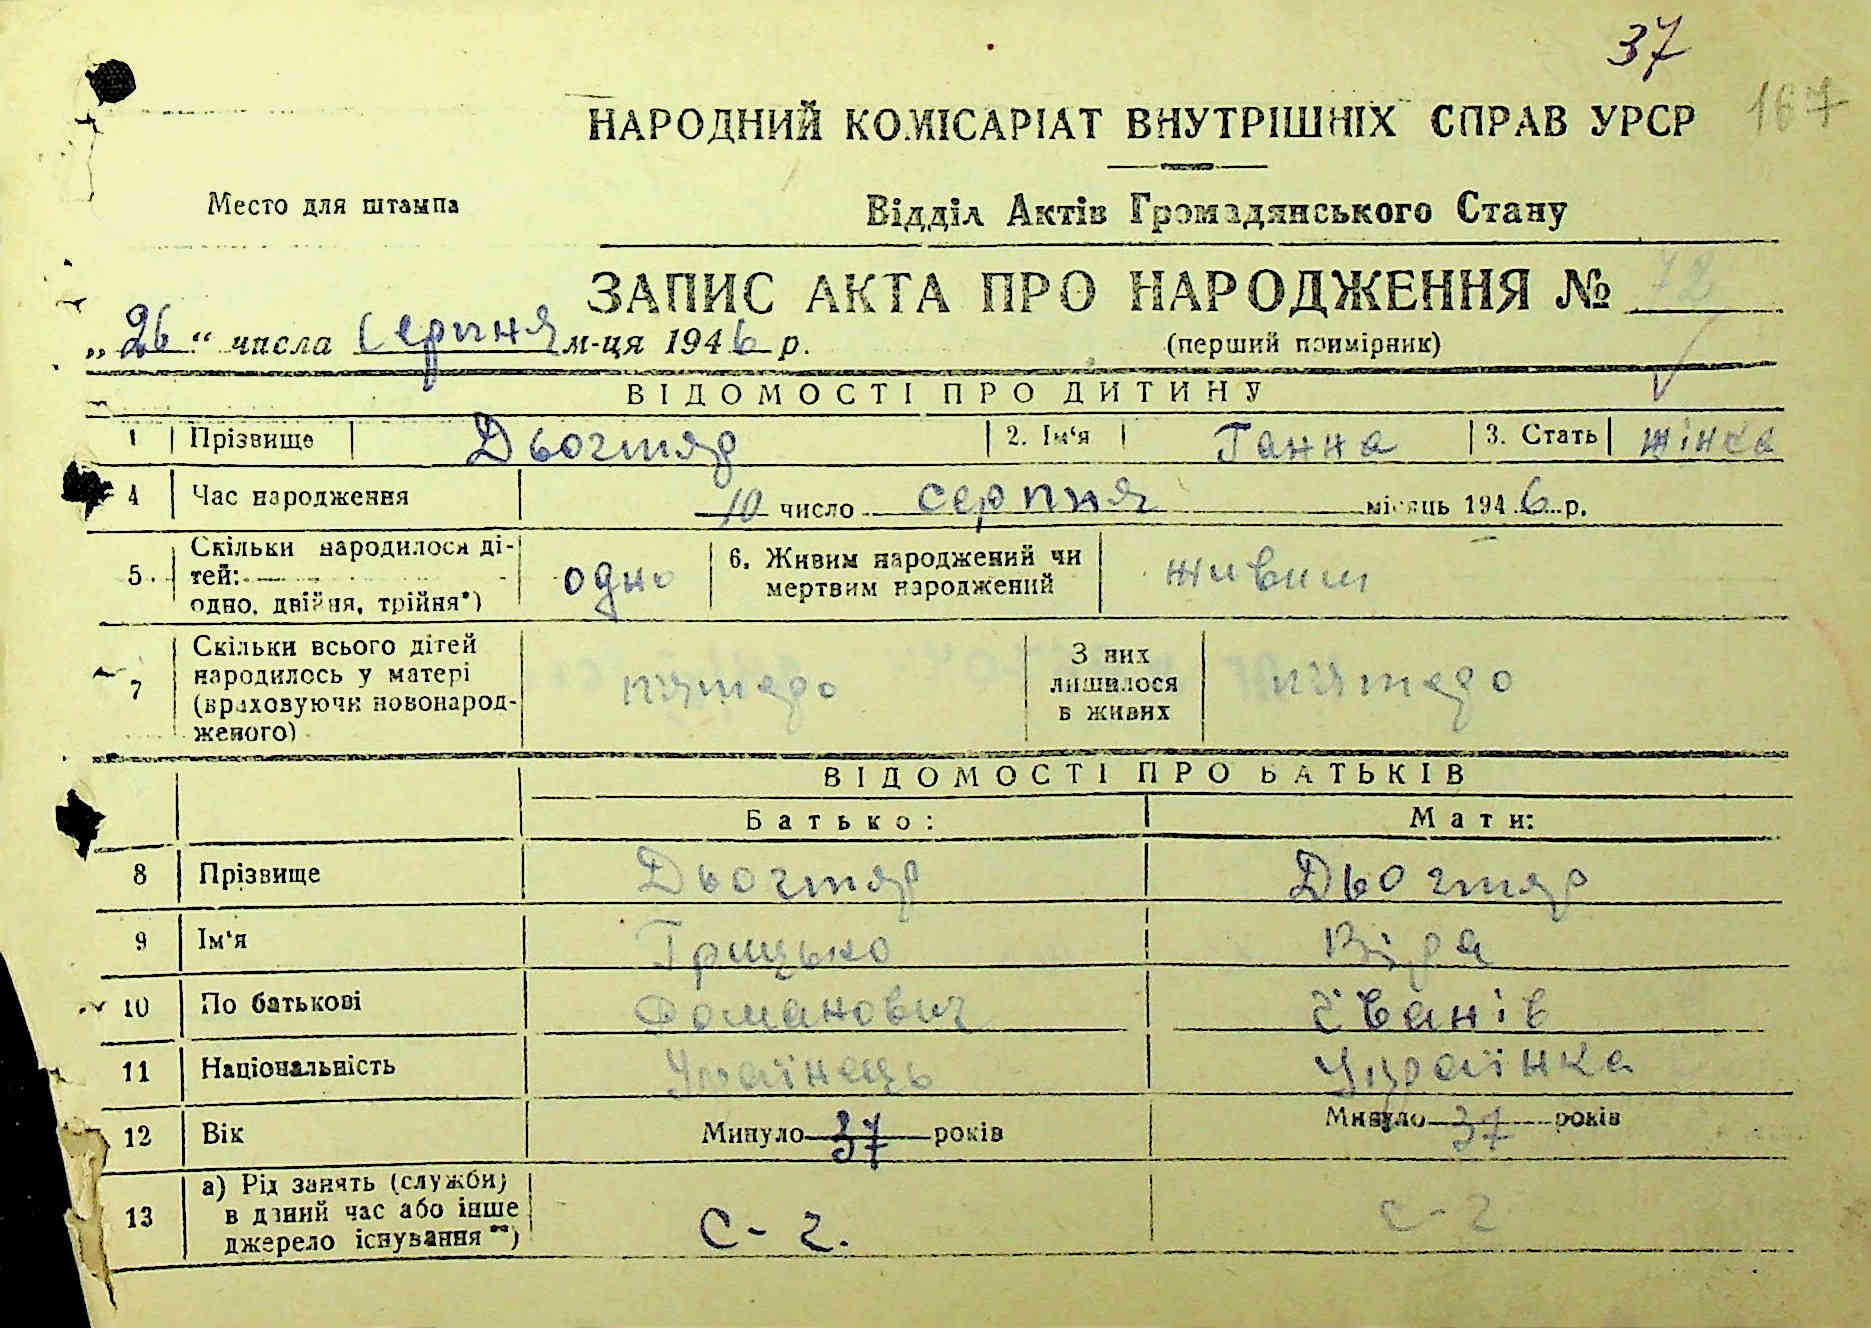 37
167
НАРОДНИЙ КОМІСАРІАТ ВНУТРІШНІХ СПРАВ УРСР
Место для штампа
Відділ Актів Громадянського Стану
ЗАПИС АКТА ПРО НАРОДЖЕННЯ № 72
„26“ числа Серпня м-ця 1946 р.
(перший примірник)
ВІДОМОСТІ ПРО ДИТИНУ
1 Прізвище Дьогтяр 2. Ім‘я Ганна 3. Стать жінка
4 Час народження 10 число серпня місяць 1946 р.
5 Скільки народилося ді-
тей:
одно, двійня, трійня*)
одно
6. Живим народжений чи
мертвим народжений
живим
7 Скільки всього дітей
народилось у матері
(враховуючи новонарод-
женого)
пятеро
З них
лишилося
в живих
пятеро
ВІДОМОСТІ ПРО БАТЬКІВ
Батько: Мати:
8 Прізвище Дьогтяр Дьогтяр
9 Ім‘я Грицько Віра
10 По батькові Романович Іванів
11 Національність Українець Українка
12 Вік Минуло 37 років Минуло 37 років
13 а) Рід занять (служби)
в даний час або інше
джерело існування **)
С-г. с-г